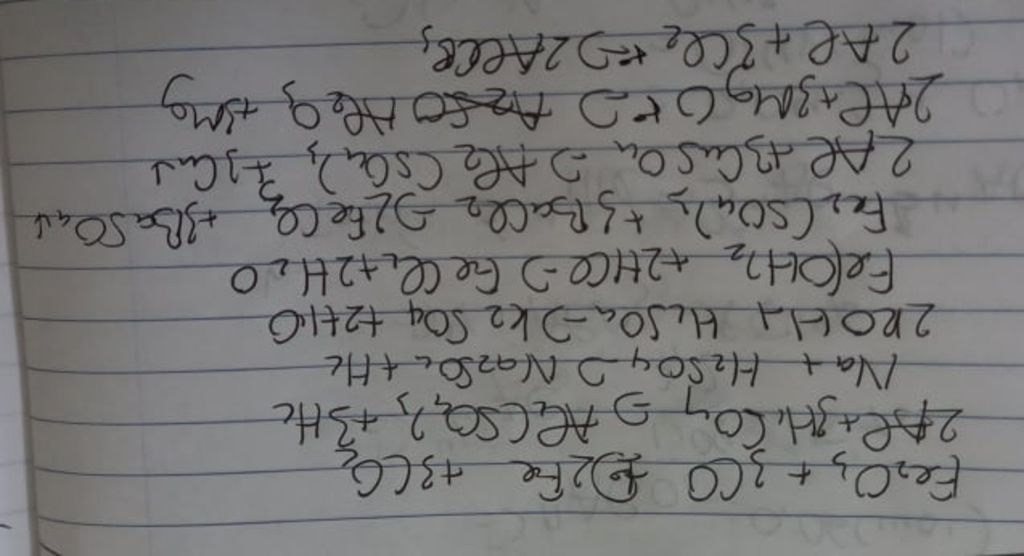 Fe₂O₃ + 3CO → 2Fe + 3CO₂
2Al + 3H₂SO₄ → Al₂(SO₄)₃ + 3H₂
Na + H₂SO₄ → Na₂SO₄ + H₂
2KOH + H₂SO₄ → K₂SO₄ + 2H₂O
Fe(OH)₂ + 2HCl → FeCl₂ + 2H₂O
Fe₂(SO₄)₃ + 3BaCl₂ → 2FeCl₃ + 3BaSO₄↓
2Al + 3CuSO₄ → Al₂(SO₄)₃ + 3Cu↓
2Al + 3MgO → Al₂O₃ + 3Mg
2Al + 3Cl₂ → 2AlCl₃